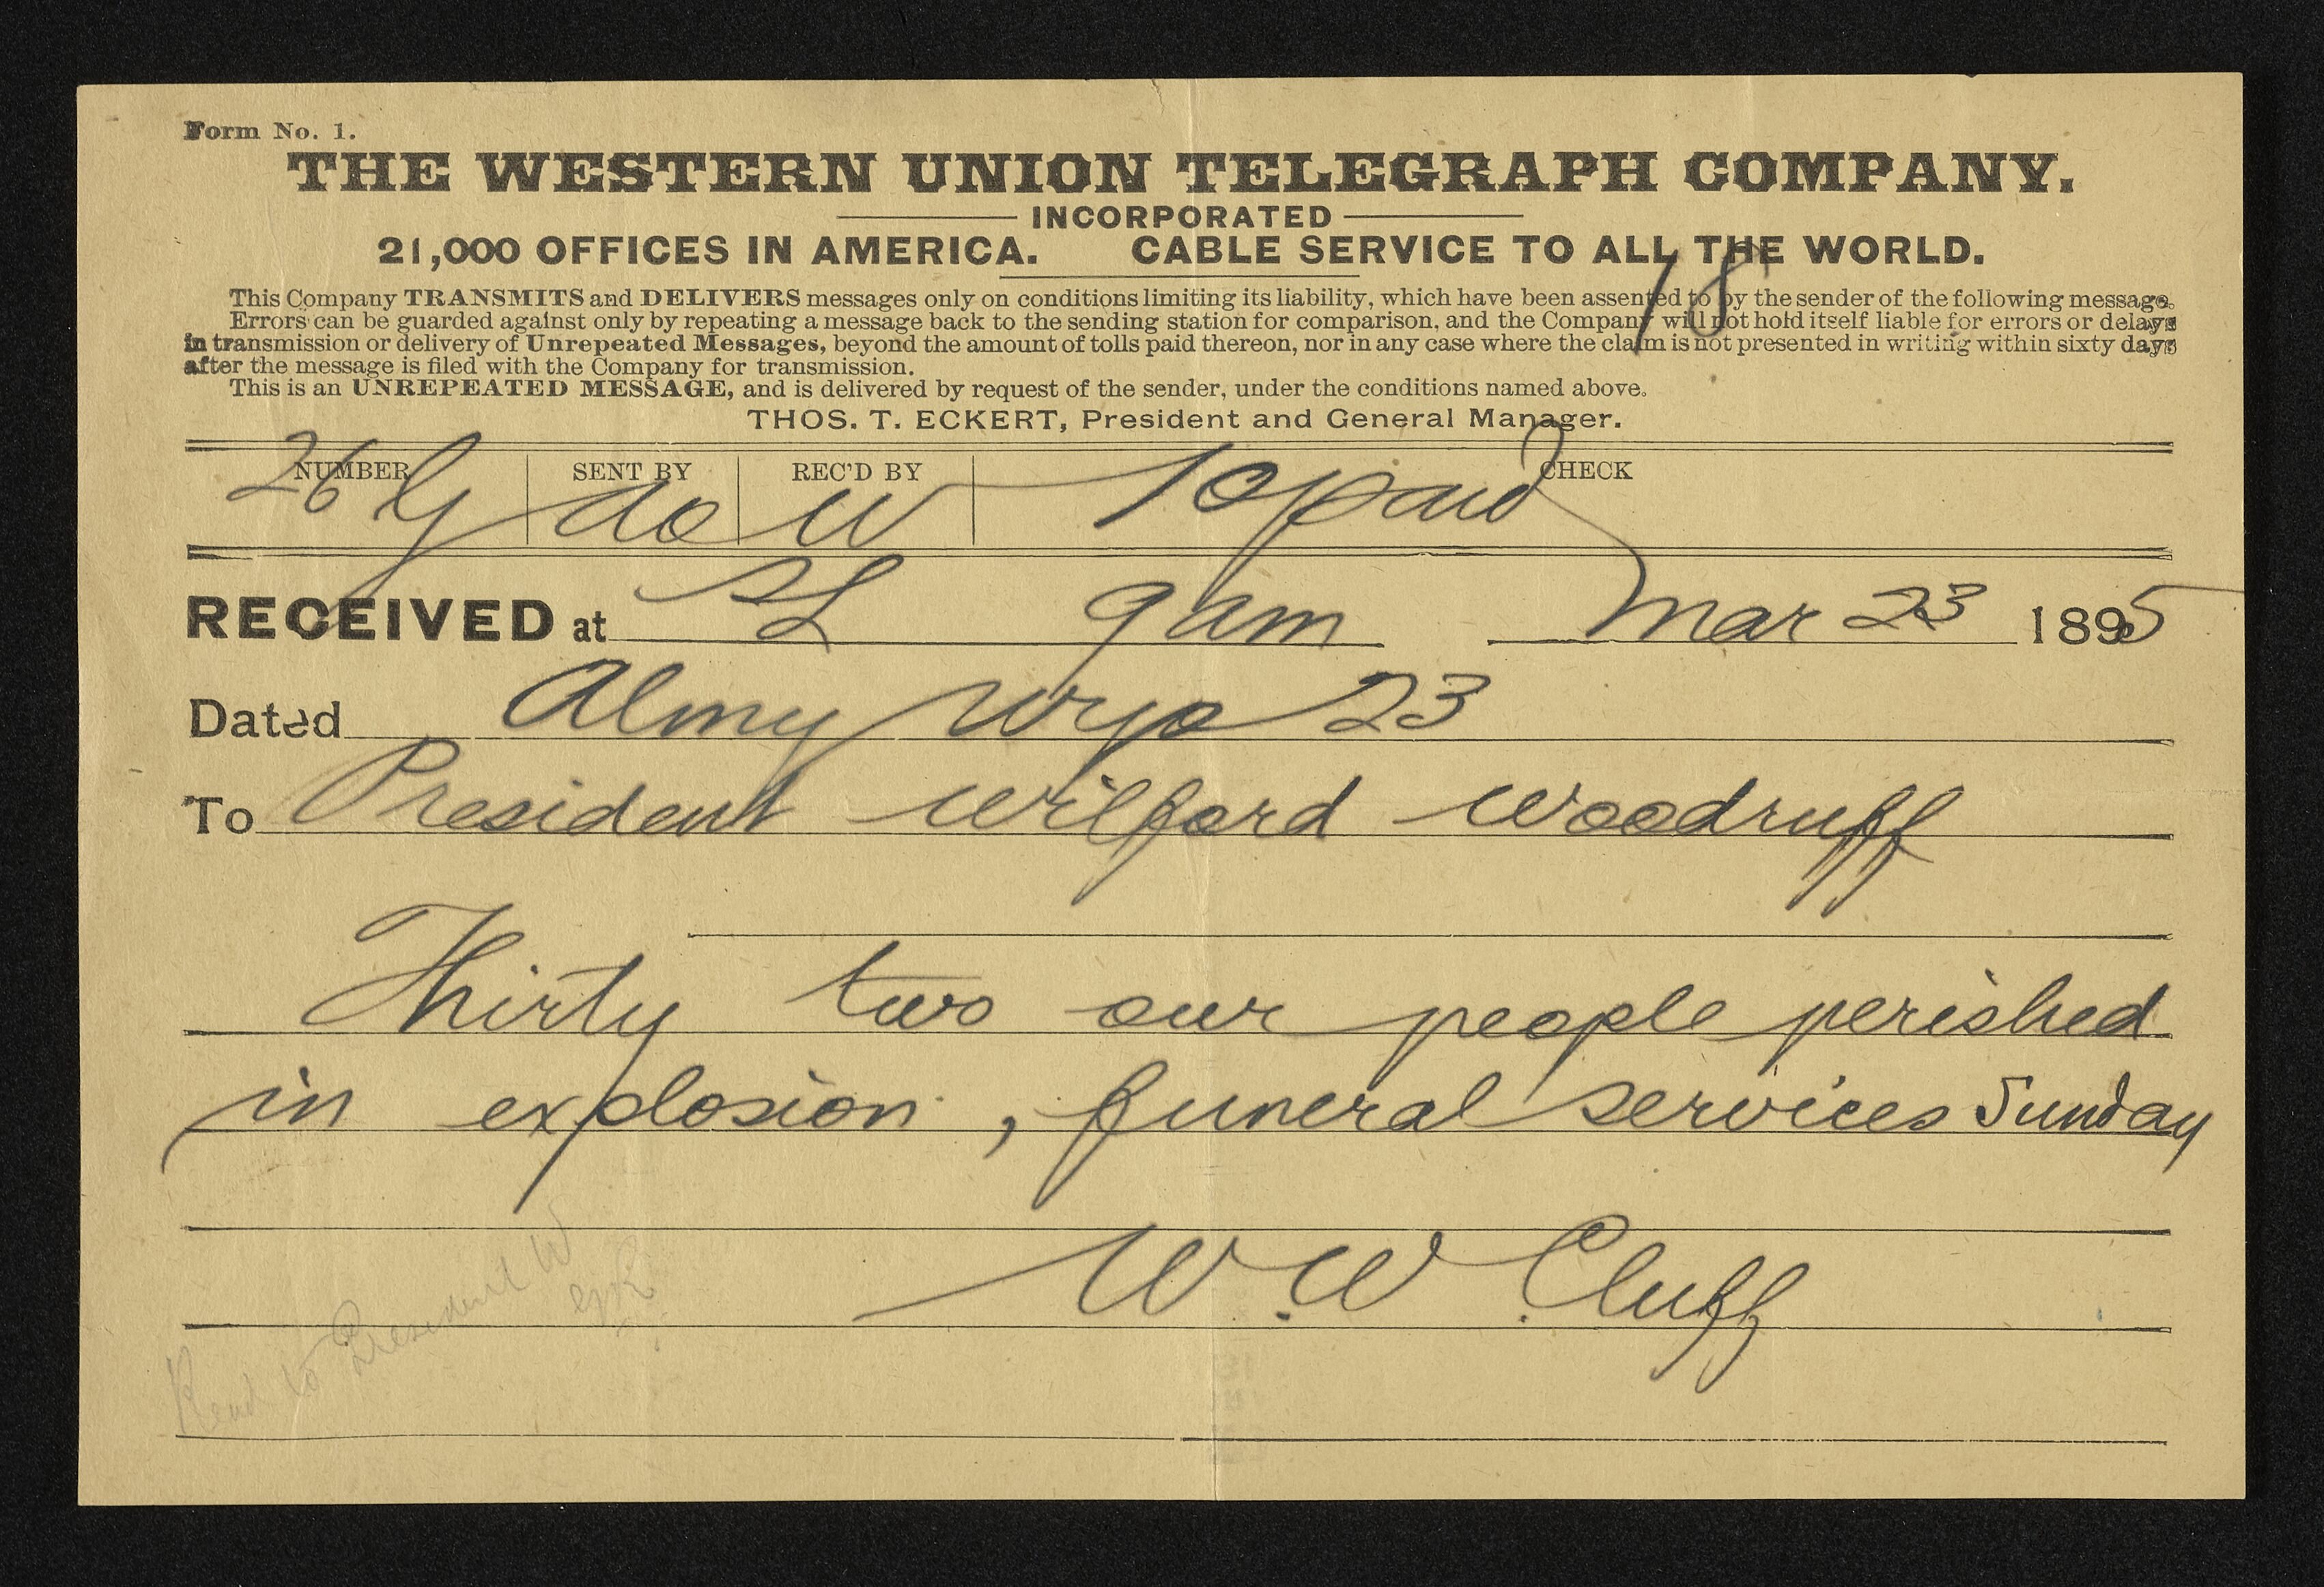 Form No. 1.
THE WESTERN UNION TELEGRAPH COMPANY.
INCORPORATED
21,000 OFFICES IN AMERICA. CABLE SERVICE TO ALL THE WORLD.
18
This Company TRANSMITS and DELIVERS messages only on conditions limiting its liability, which have been assented to by the sender of the following message.
Errors can be guarded against only by repeating a message back to the sending station for comparison, and the Company will not hold itself liable for errors or delays
in transmission or delivery of Unrepeated Messages, beyond the amount of tolls paid thereon, nor in any case where the claim is not presented in writing within sixty days
after the message is filed with the Company for transmission.
This is an UNREPEATED MESSAGE, and is delivered by request of the sender, under the conditions named above.
THOS. T. ECKERT, President and General Manager.
NUMBER SENT BY REC'D BY CHECK
26 W 10 paid
RECEIVED at SL 9 am Mar 23 1895
Dated Almy Wyo 23
To President Wilford Woodruff
Thirty two our people perished
in explosion, funeral services Sunday
W. W. Cluff
Read to President W